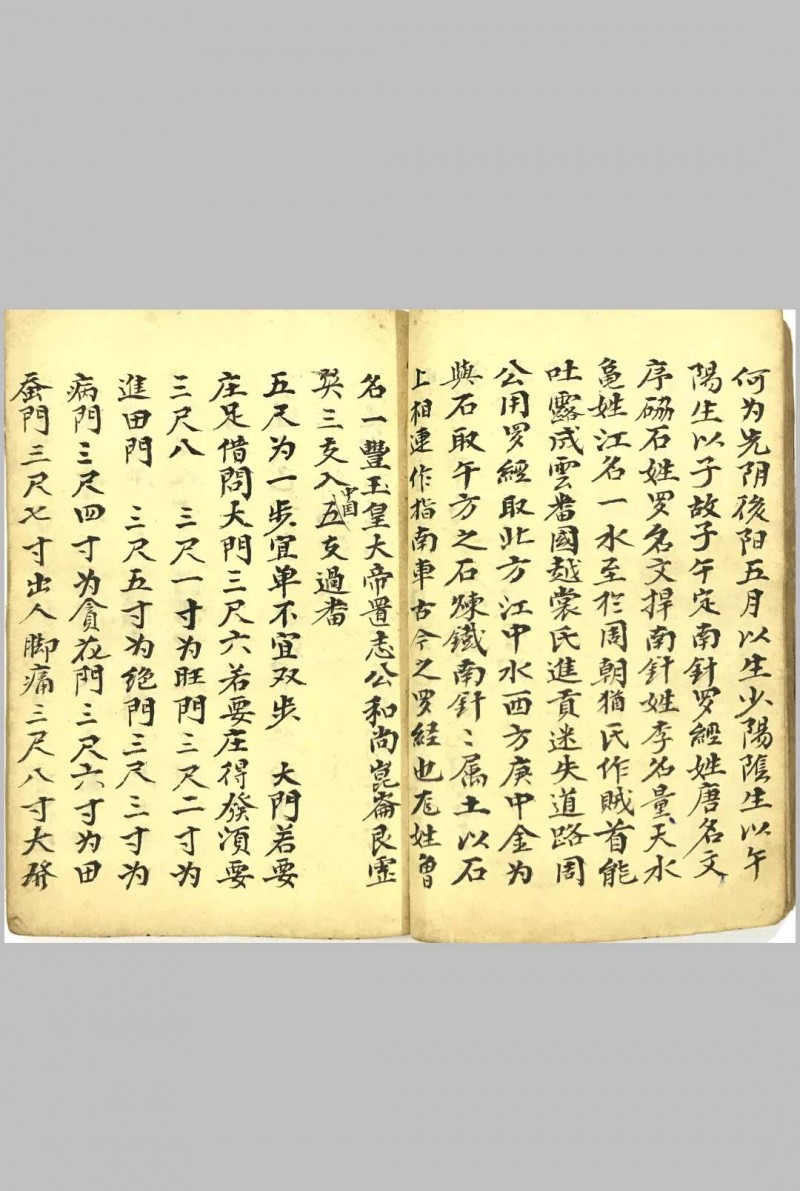 何为先阴後阳五月以生少陽陰生以午
陽生以子故子午定南針罗經姓唐名文
序砺石姓罗名文捍南針姓李名量天水
亀姓江名一水至扵周朝猶氏作贼首能
吐露成雲畨國越裳氏進貢迷失道路周
公用罗經取北方江中水西方庚中金为
與石取午方之石煉鐵南針〻属土以石
上相連作指南車古今之罗経也尨姓曾
名一豐玉皇大帝置志公和尚崑崙艮
癸三支入中国五支過畨
五尺为一步宜单不宜双步 大門若要
庄足借問大門三尺六若要庄得發湏要
三尺八 三尺一寸为旺門三尺二寸为
進田門 三尺五寸为绝門三尺三寸为
病門三尺四寸为貪花門三尺六寸为田
蚕門三尺七寸出人脚痛三尺八寸大發